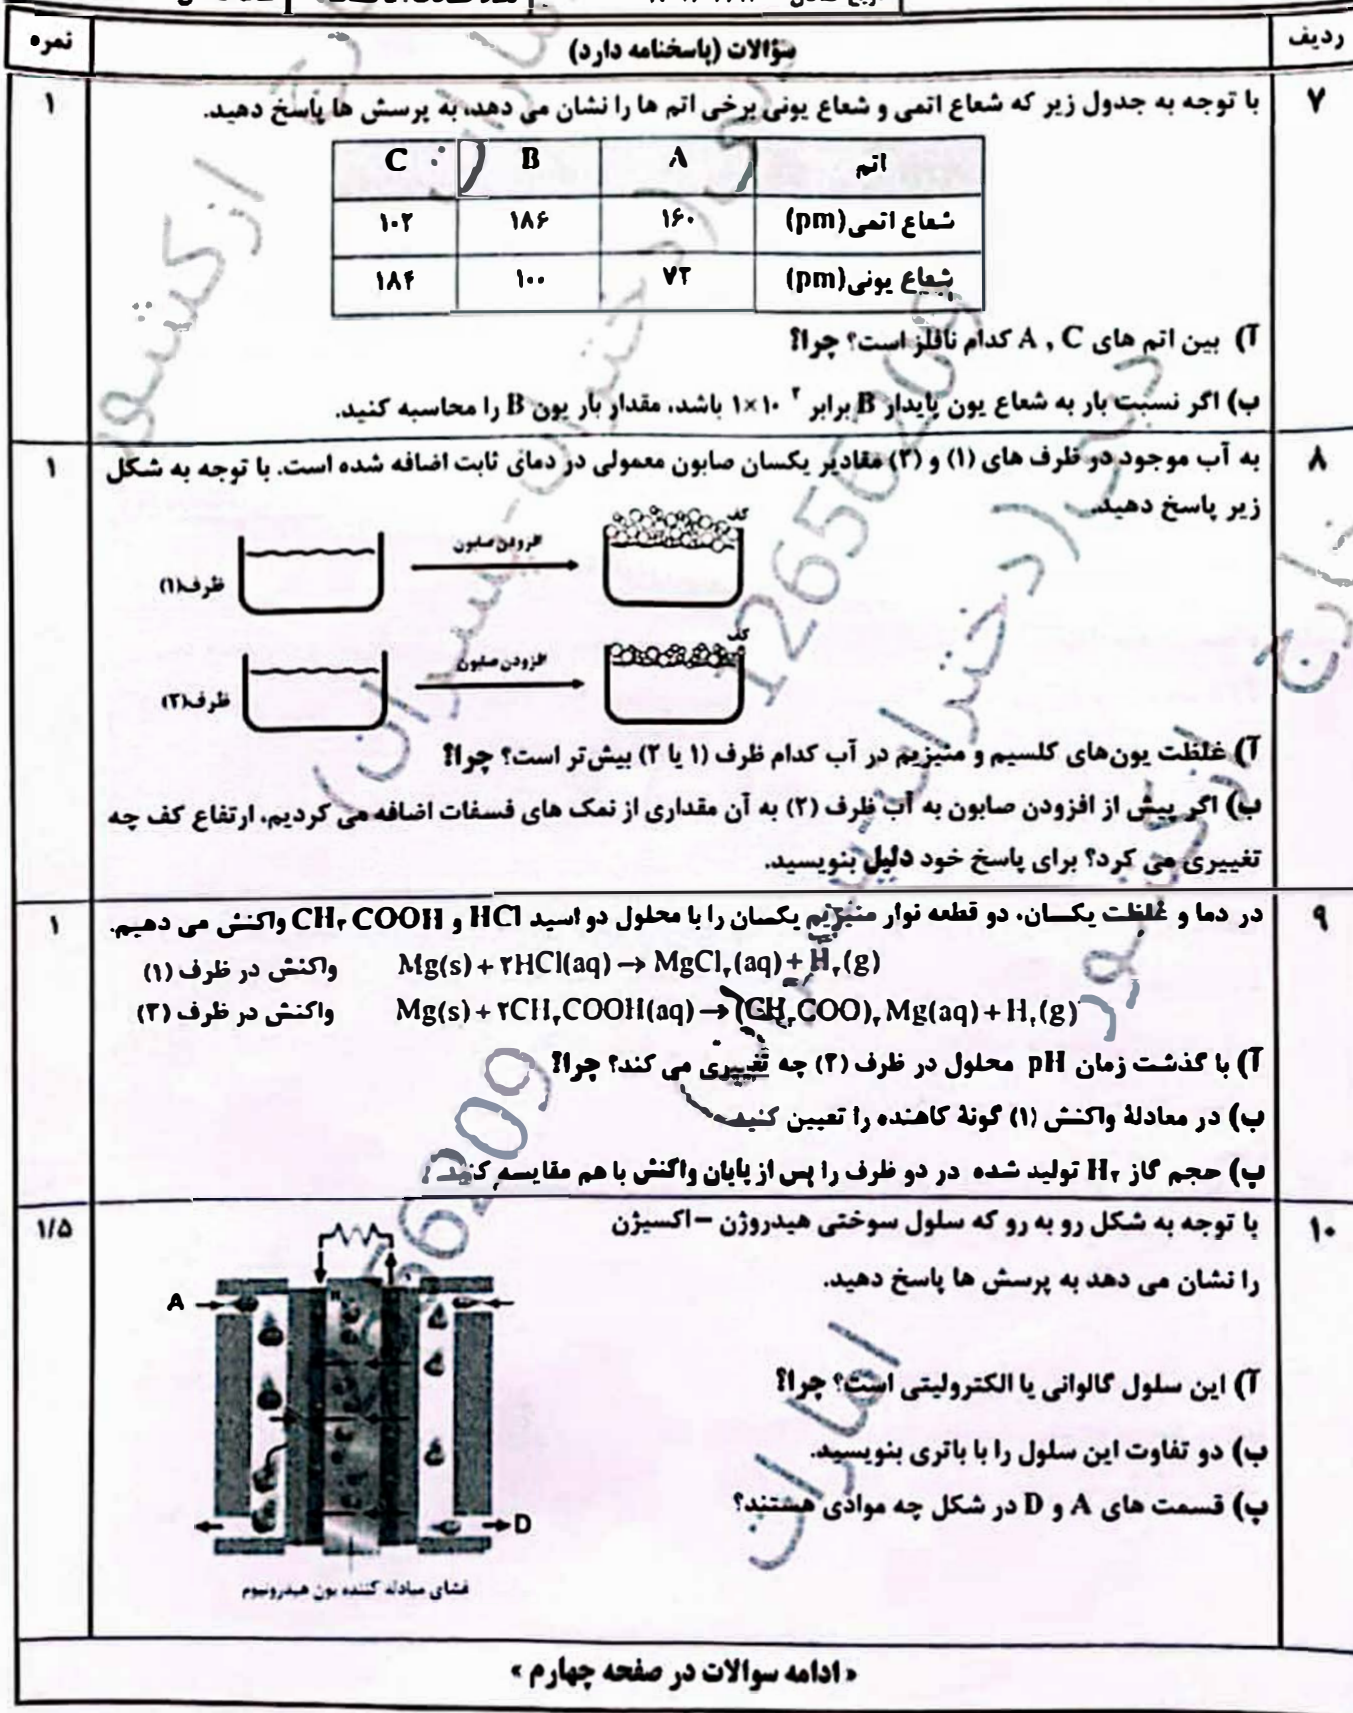 ردیف
سؤالات (پاسخنامه دارد)
نمره
۷
با توجه به جدول زیر که شعاع اتمی و شعاع یونی برخی اتم ها را نشان می دهد، به پرسش ها پاسخ دهید.
۱
اتم A B C
شعاع اتمی(pm) ۱۶۰ ۱۸۶ ۱۰۲
شعاع یونی(pm) ۷۲ ۱۰۰ ۱۸۴
آ) بین اتم های A , C کدام نافلز است؟ چرا؟
ب) اگر نسبت بار به شعاع یون پایدار B برابر ۱×۱۰ ۲ باشد، مقدار بار یون B را محاسبه کنید.
۸
به آب موجود در ظرف های (۱) و (۲) مقادیر یکسان صابون معمولی در دمای ثابت اضافه شده است. با توجه به شکل
۱
زیر پاسخ دهید.
ظرف(۱)
افزودن صابون
کف
ظرف(۲)
افزودن صابون
کف
آ) غلظت یون‌های کلسیم و منیزیم در آب کدام ظرف (۱ یا ۲) بیش‌تر است؟ چرا؟
ب) اگر پیش از افزودن صابون به آب ظرف (۲) به آن مقداری از نمک های فسفات اضافه می کردیم، ارتفاع کف چه
تغییری می کرد؟ برای پاسخ خود دلیل بنویسید.
۹
در دما و غلظت یکسان، دو قطعه نوار منیزیم یکسان را با محلول دو اسید HCl و CH۳COOH واکنش می دهیم.
۱
واکنش در ظرف (۱) Mg(s) + ۲HCl(aq) → MgCl۲(aq) + H۲(g)
واکنش در ظرف (۲) Mg(s) + ۲CH۳COOH(aq) → (CH۳COO)۲Mg(aq) + H۲(g)
آ) با گذشت زمان pH محلول در ظرف (۲) چه تغییری می کند؟ چرا؟
ب) در معادلهٔ واکنش (۱) گونهٔ کاهنده را تعیین کنید.
پ) حجم گاز H۲ تولید شده در دو ظرف را پس از پایان واکنش با هم مقایسه کنید.
۱۰
با توجه به شکل رو به رو که سلول سوختی هیدروژن – اکسیژن
۱/۵
را نشان می دهد به پرسش ها پاسخ دهید.
آ) این سلول گالوانی یا الکترولیتی است؟ چرا؟
ب) دو تفاوت این سلول را با باتری بنویسید.
پ) قسمت های A و D در شکل چه موادی هستند؟
A
D
فضای مبادله کننده یون هیدرونیوم
« ادامه سوالات در صفحه چهارم »